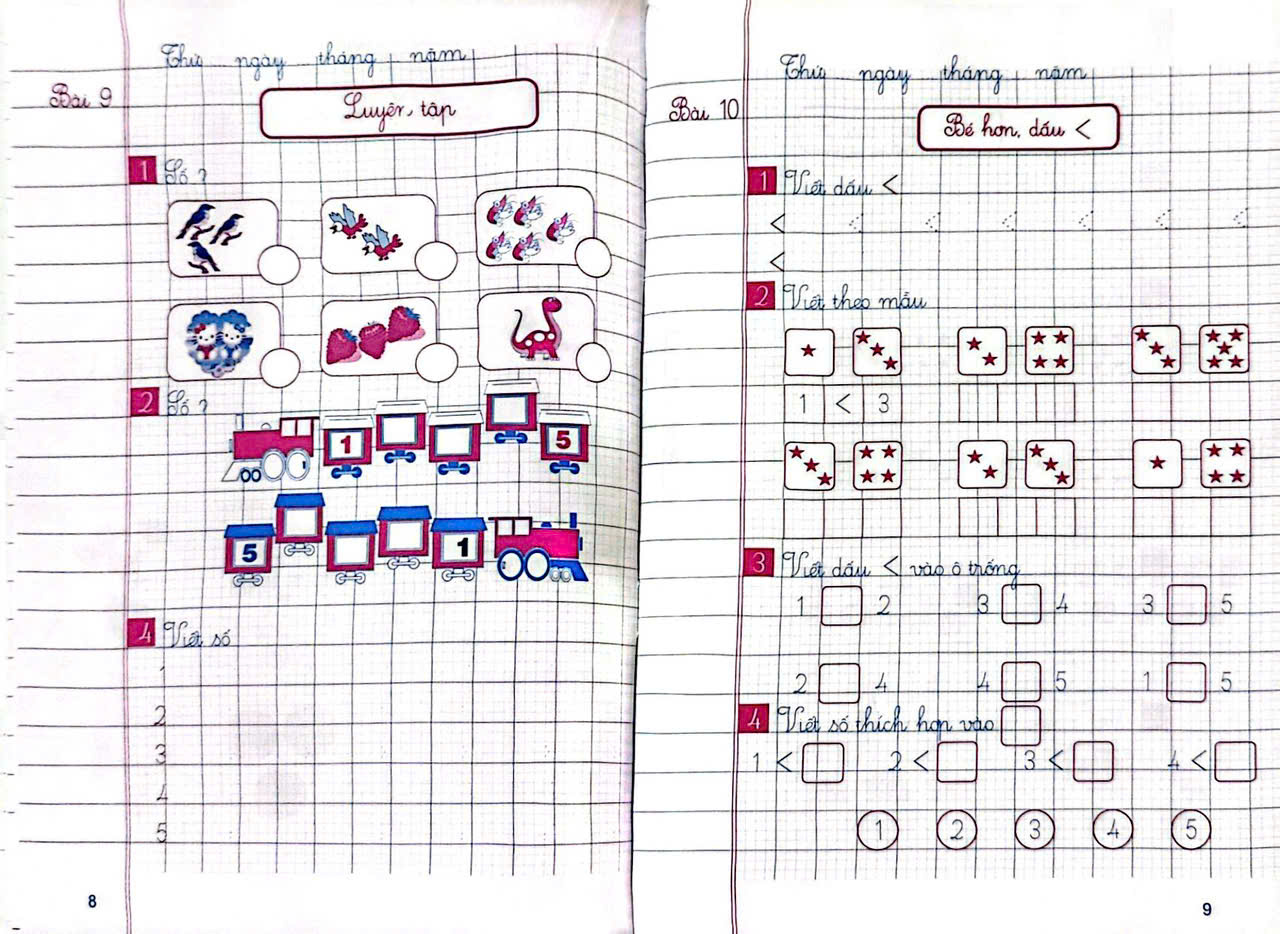 Thứ ngày tháng năm
Bài 9
Luyện tập
1 Số ?
2 Số ?
1 5
5 1
4 Viết số
1
2
3
4
5
8
Thứ ngày tháng năm
Bài 10
Bé hơn, dấu <
1 Viết dấu <
< < < < < < <
<
2 Viết theo mẫu
1 < 3
3 Viết dấu < vào ô trống
1 2 3 4 3 5
2 4 4 5 1 5
4 Viết số thích hợp vào
1 < 2 < 3 < 4 <
1 2 3 4 5
9